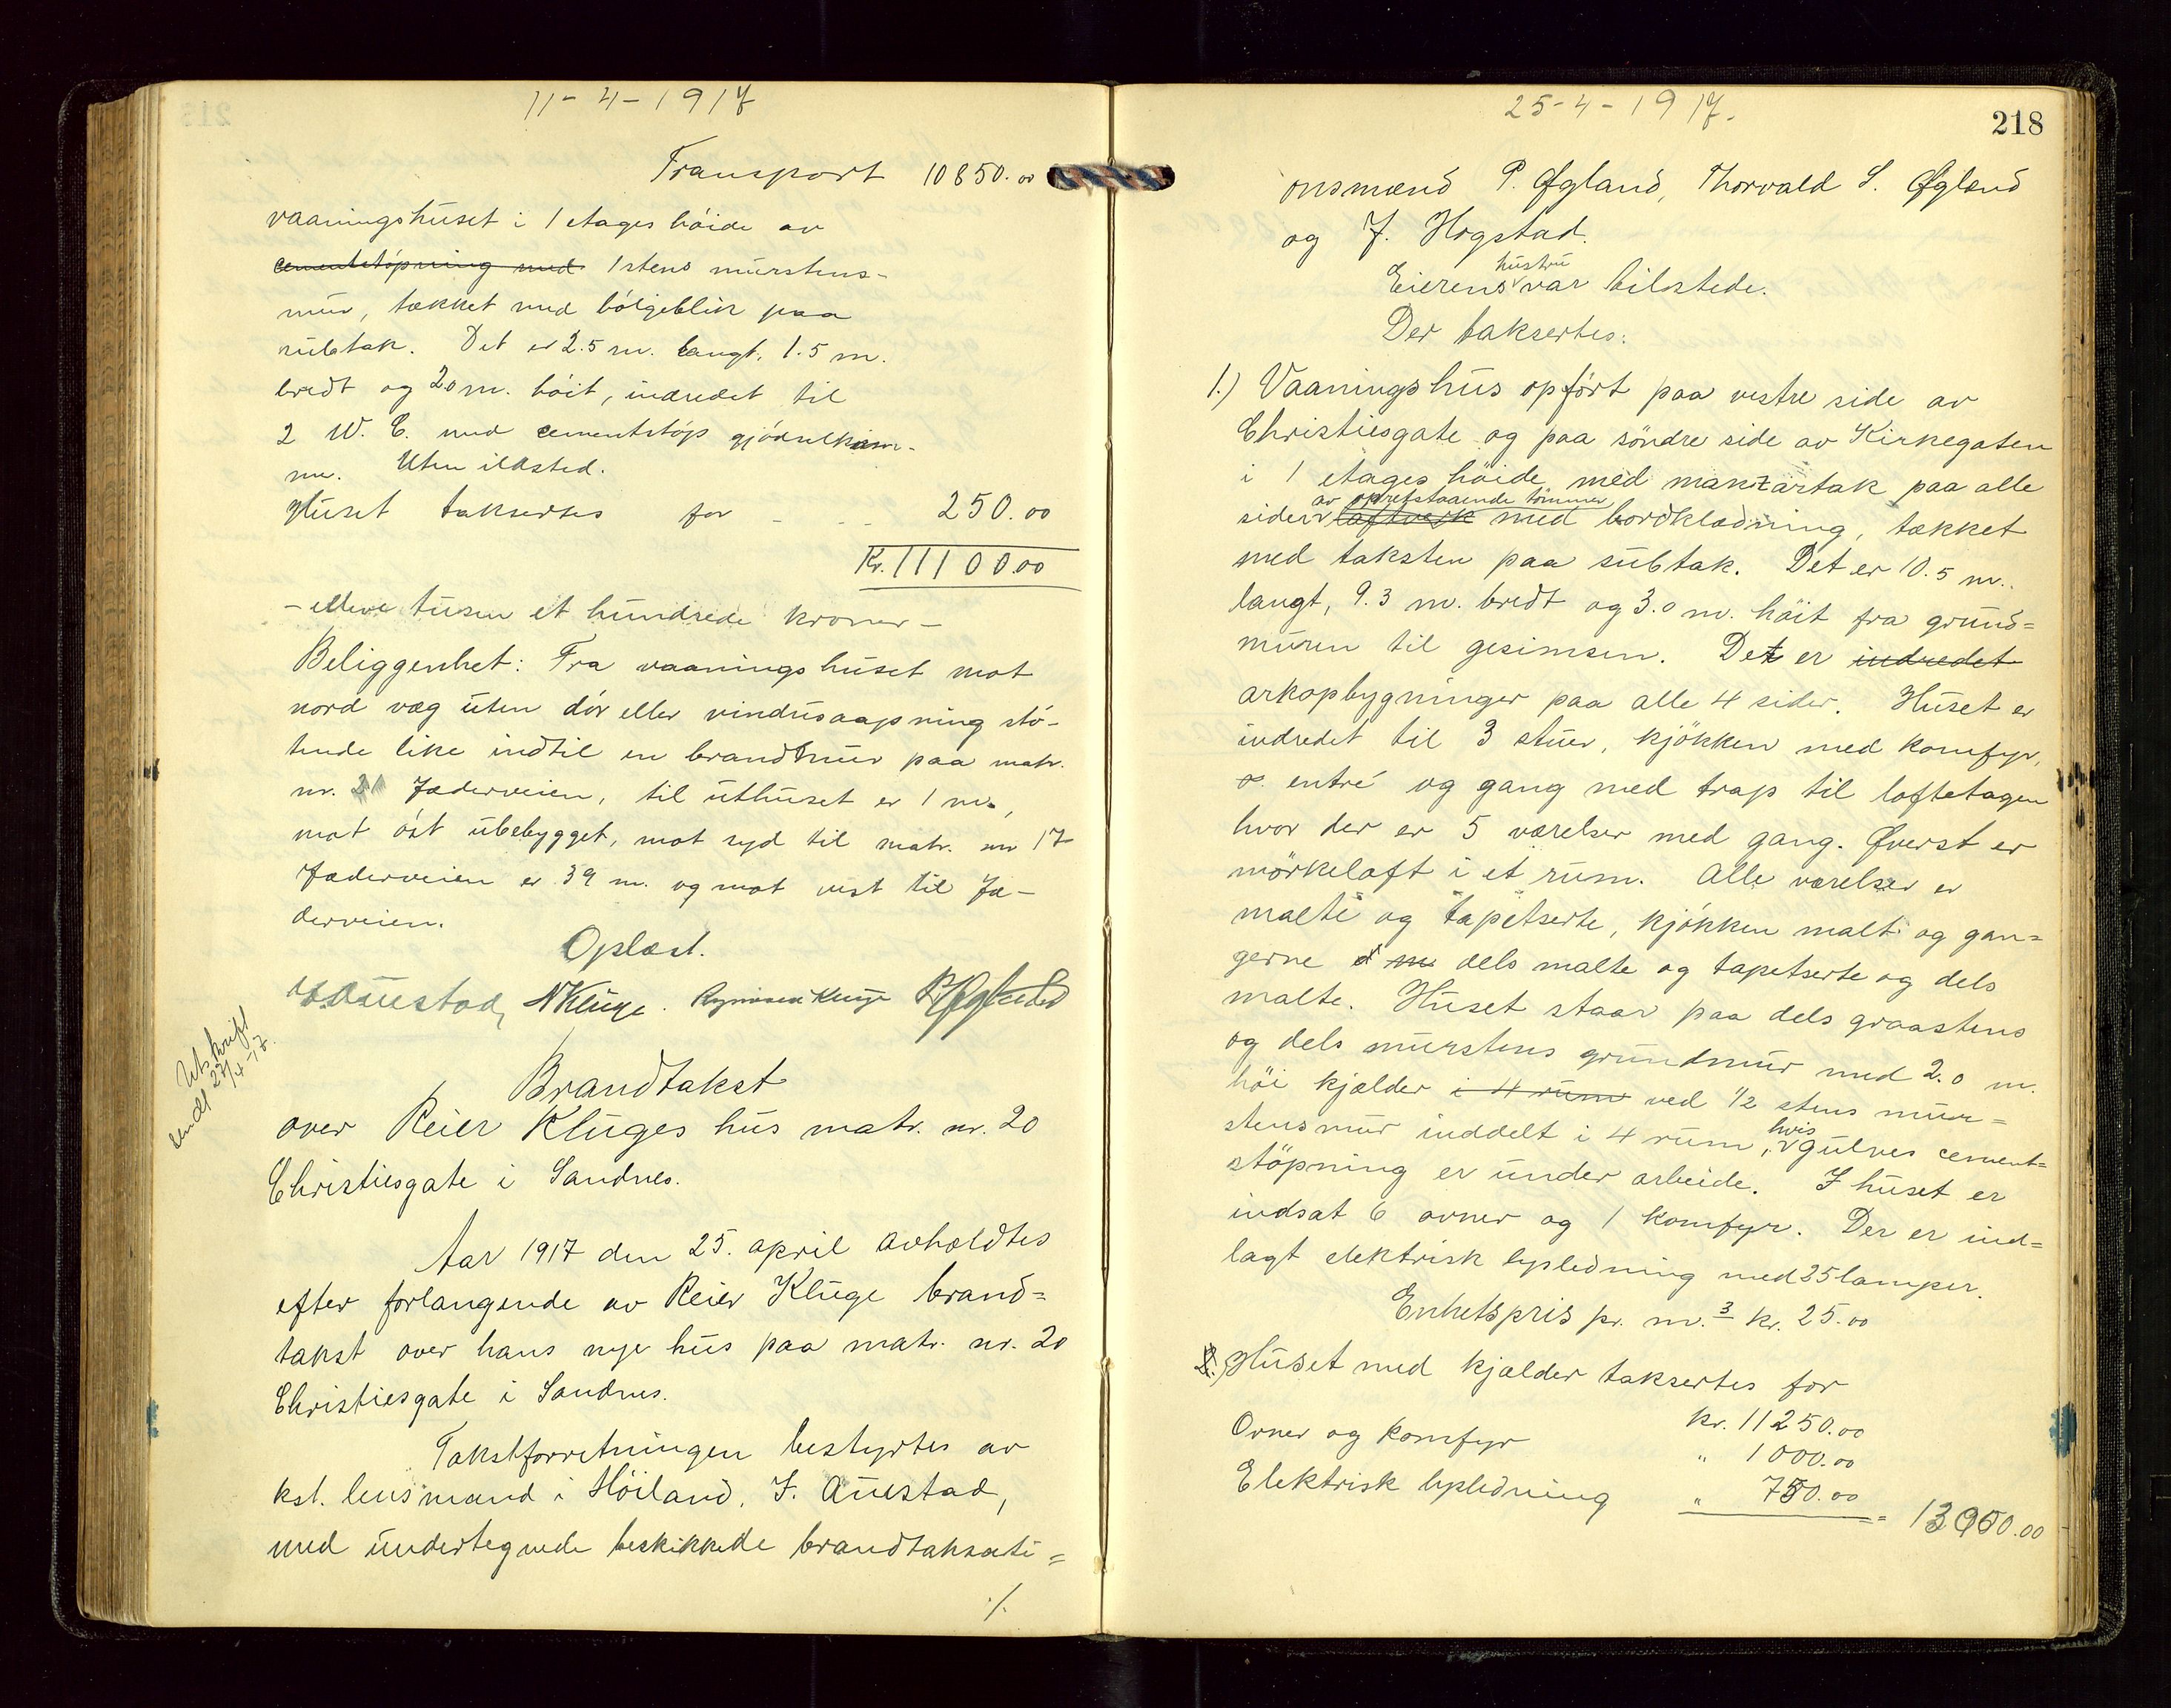 11-4-1917
Transport 10850.00
vaaningshuset i 1 etages höide av
cementstöpning med 1 stens murstens-
mur, tækket med bölgeblik paa
subtak. Det er 2.5 m. langt, 1.5 m.
bredt og 2.0 m. höit, indredet til
2 W. C. med cementstöpt gjödselkum-
me. Uten ildsted.
Huset takseres for - - - 250.00
Kr. 11100.00
- elleve tusen et hundrede kroner -
Beliggenhet: Fra vaaningshuset mot
nord væg uten dör eller vindusaapning stö-
tende like indtil en brandmur paa matr.
nr. 21 Jæderveien, til uthuset er 1 m.,
mot öst ubebygget, mot syd til matr. nr 17
Jæderveien er 39 m. og mot vest til Jæ-
derveien.
Oplæst.
Auestad, N Kluge. Rasmus Kluge P. Øgland
Utskrift
sendt 27/4-17.
Brandtakst
over Reier Kluges hus matr. nr. 20
Christiesgate i Sandnes.
Aar 1917 den 25. april avholdtes
efter forlangende av Reier Kluge brand=
takst over hans nye hus paa matr. nr. 20
Christiesgate i Sandnes.
Takstforretningen bestyrtes av
kst. lensmand i Höiland, J. Auestad,
med undertegnede beskikkede brandtaksati=
./.
25-4-1917.
218
onsmænd P. Øgland, Thorvald S. Øgland
og J. Hogstad.
Eierens hustru var tilstede.
Der taksertes:
1.) Vaaningshus opfört paa vestre side av
Christiesgate og paa söndre side av Kirkegaten
i 1 etages höide med manzartak paa alle
sider av opretstaaende tömmer laftverk med bordklædning, tækket
med taksten paa subtak. Det er 10.5 m.
langt, 9.3 m. bredt og 3.0 m. höit fra grund=
muren til gesimsen. Det er indredet
arkopbygninger paa alle 4 sider. Huset er
indredet til 3 stuer, kjökken med komfyr,
entré og gang med trap til loftetagen
hvor der er 5 værelser med gang. Øverst er
mörkeloft i et rum. Alle værelser er
malte og tapetserte, kjökken malt og gan=
gerne dels malte og tapetserte og dels
malte. Huset staar paa dels graastens
og dels murstens grundmur med 2.0 m.
höi kjælder i 4 rum ved 1/2 stens mur=
stensmur inddelt i 4 rum, hvis gulves cement=
stöpning er under arbeide. I huset er
indsat 6 ovner og 1 komfyr. Der er ind=
lagt elektrisk lysledning med 25 lamper.
Enhetspris pr. m.3 kr. 25.00
Huset med kjælder taksertes for
kr. 11250.00
Ovner og komfyr " 1000.00
Elektrisk lysledning " 750.00 = 13000.00